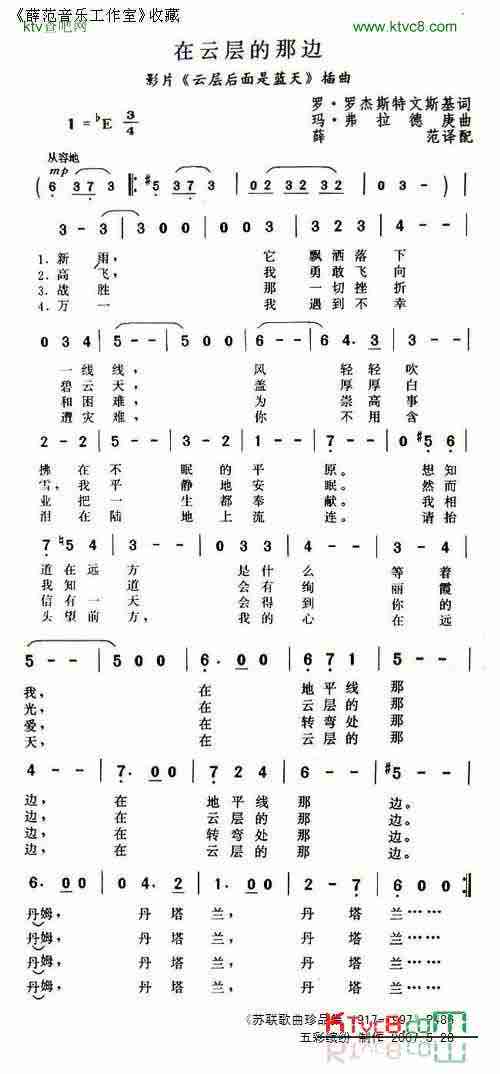 《薛范音乐工作室》收藏
ktv音吧网
www.ktvc8.com
在云层的那边
影片《云层后面是蓝天》插曲
罗·罗杰斯特文斯基词
玛·弗拉德庚曲
薛范译配
1=♭E 3/4
从容地
mp
( 6 3 7 3 ‖: #5 3 7 3 | 0 2 3 2 3 2 | 0 3 2 3 2 ) |
3 - 3 | 3 0 0 | 0 0 3 | 3 2 3 | 4 - 0 |
1.新雨, 它飘洒落下
2.高飞, 我勇敢飞向
3.战胜 那一切挫折
4.万一 我遇到不幸
0 3 4 | 5 - - | 5 0 0 | 6 - - | 6 4. 3 | 3 3 2 |
一线线, 风轻轻吹
碧云天, 盖厚厚白
和困难, 为崇高事
遭灾难, 你不用含
2 - 2 | 5 - - | 3 - 2 | 1 - - | 7 - - | 6 - - | 0 #5 6 |
拂在不眠的平原。 想知
雪,我平静地安眠。 然而
业把一生都奉献。 我相
泪在陆地上流连。 请抬
7 ♮5 4 | 3 - - | 0 3 3 | 3 - - | 3 - 4 |
道在远方 是什么等着
我知道 会有绚丽霞
信有一天 会得到你的
头望前方, 我的心在远
5 - - | 5 0 0 | 6. 0 0 | 6 7 1 | 5 - - |
我, 在地平线那
光, 在云层的那
爱, 在转弯处那
天, 在云层的那
4 - - | 7. 0 0 | 7 2 4 | 6 - - | #5 - - |
边, 在地平线那边。
边, 在云层的那边。
边, 在转弯处那边。
边, 在云层的那边。
6. 0 0 | 0 4. 2 | 1. 0 0 | 2 - 7 | 6 0 0 :‖
丹姆, 丹塔兰, 丹塔兰……
丹姆, 丹塔兰, 丹塔兰……
丹姆, 丹塔兰, 丹塔兰……
丹姆, 丹塔兰, 丹塔兰……
《苏联歌曲珍品
五彩缤纷 制作 2007.5.28
KTvc8.com